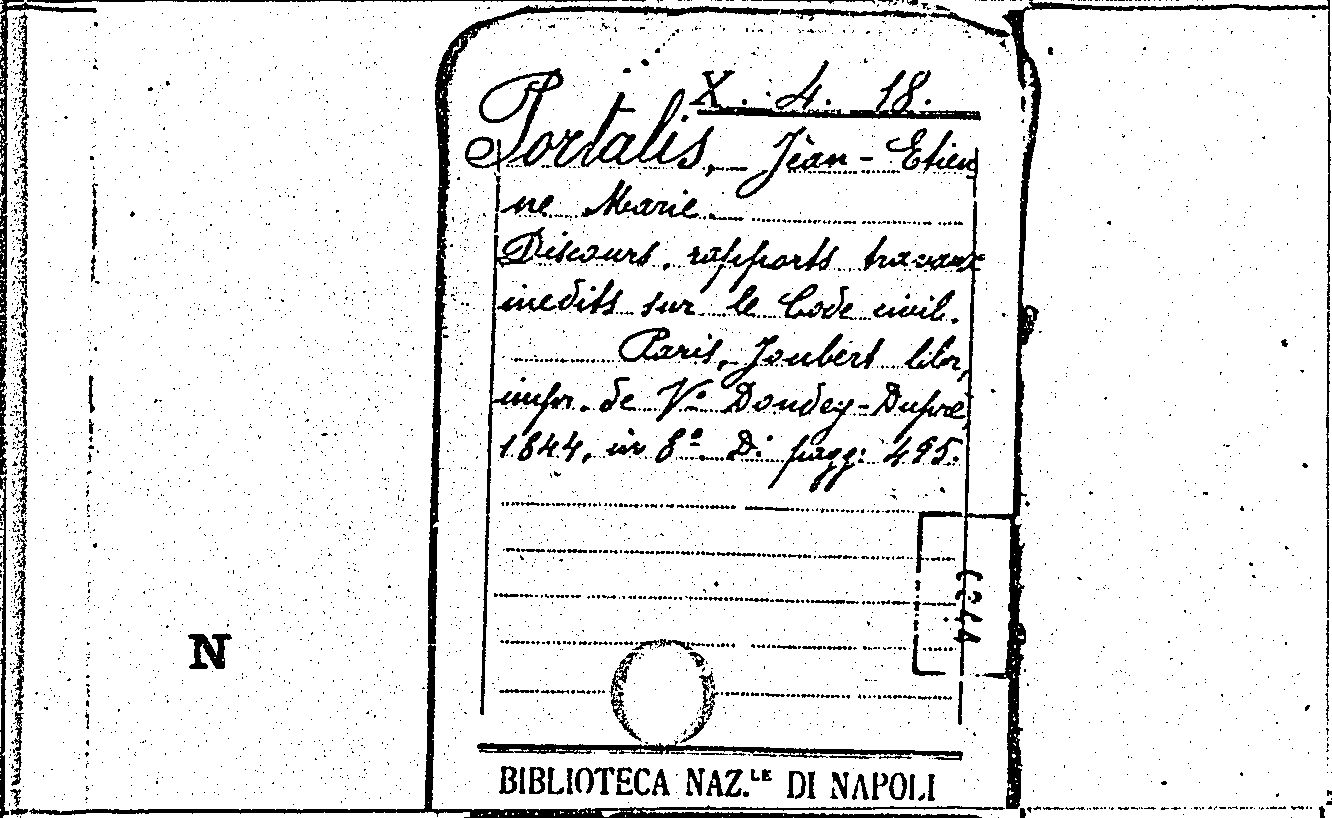 X. 4. 18.
Portalis, Jean-Etien
ne Marie.
Discours, rapports travaux
inedits sur le Code civil.
Paris, Joubert libr,
impr. de Vᵉ Dondey-Dupré,
1844, in 8º. Di pagg: 495.
N
BIBLIOTECA NAZ.LE DI NAPOLI